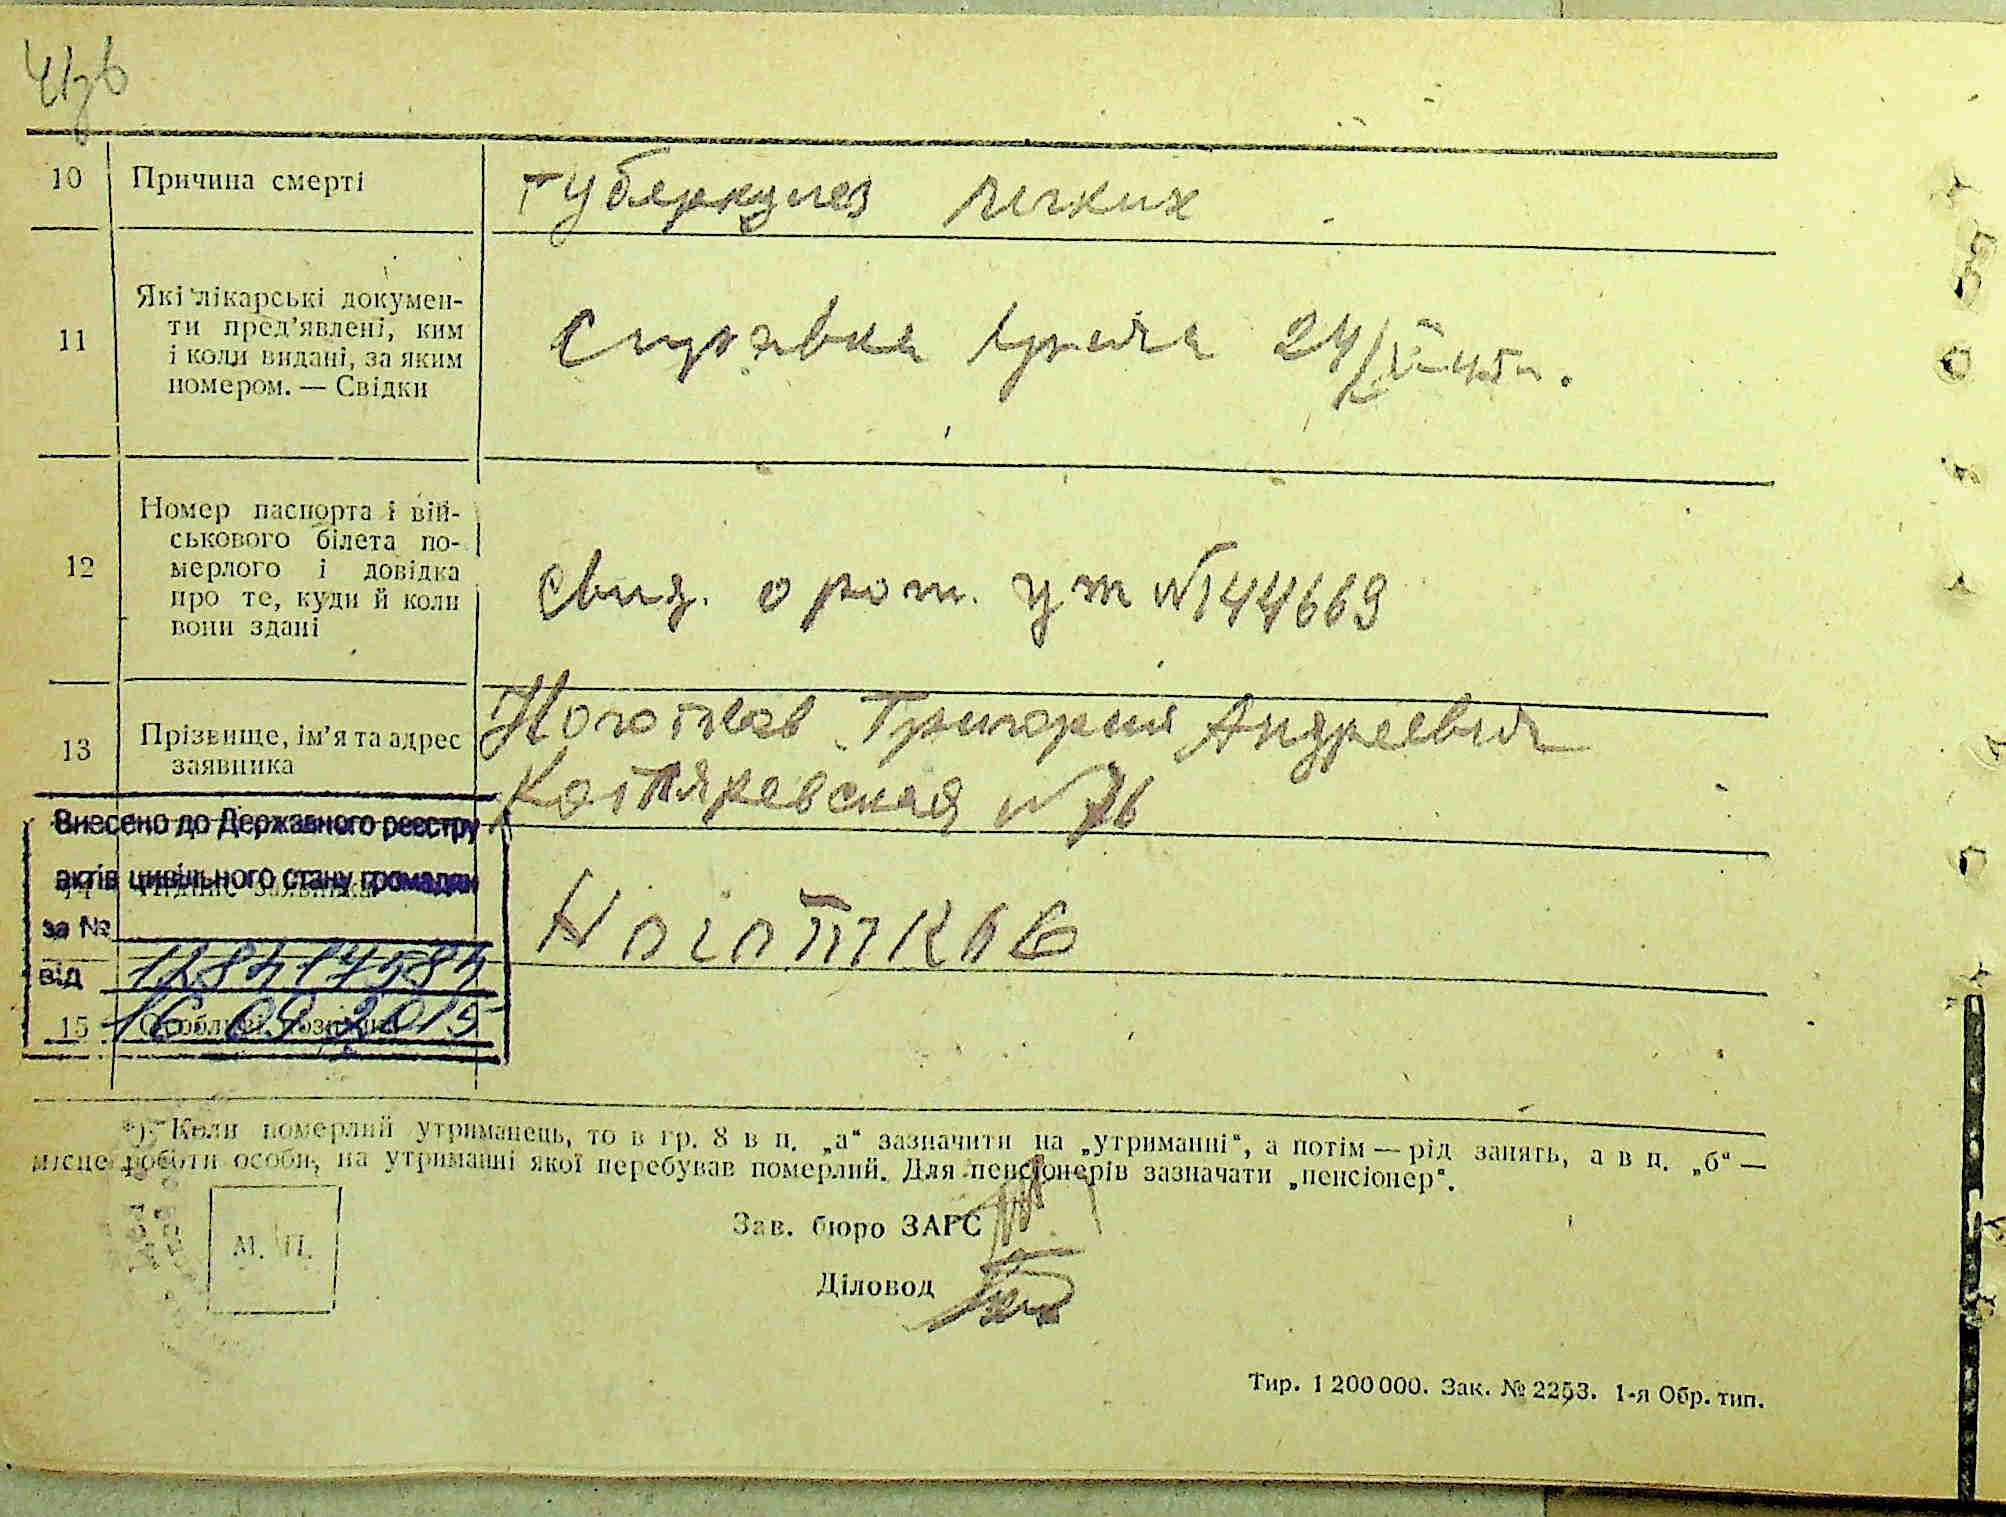 10 Причина смерті туберкулез легких
11 Які лікарські докумен-
ти пред'явлені, ким
і коли видані, за яким
номером. — Свідки
Справка врача 24/
12 Номер паспорта і вій-
ськового білета по-
мерлого і довідка
про те, куди й коли
вони здані
Свид. о рож. УЖ №144669
13 Прізвище, ім'я та адрес
заявника
Ноготков Григорий Андреевич
Котляревская №76
Внесено до Державного реєстру
актів цивільного стану громадян
за №
від 1283417584
16 09 2015
14 Підпис заявника
Ноготков
15 Особливі позначки
*) Коли померлий утриманець, то в гр. 8 в п. „а“ зазначити на „утриманні“, а потім — рід занять, а в п. „б“ —
місце роботи особи, на утриманні якої перебував померлий. Для пенсіонерів зазначати „пенсіонер“.
Зав. бюро ЗАГС
М. П.
Діловод
Тир. 1 200 000. Зак. № 2253. 1-я Обр. тип.